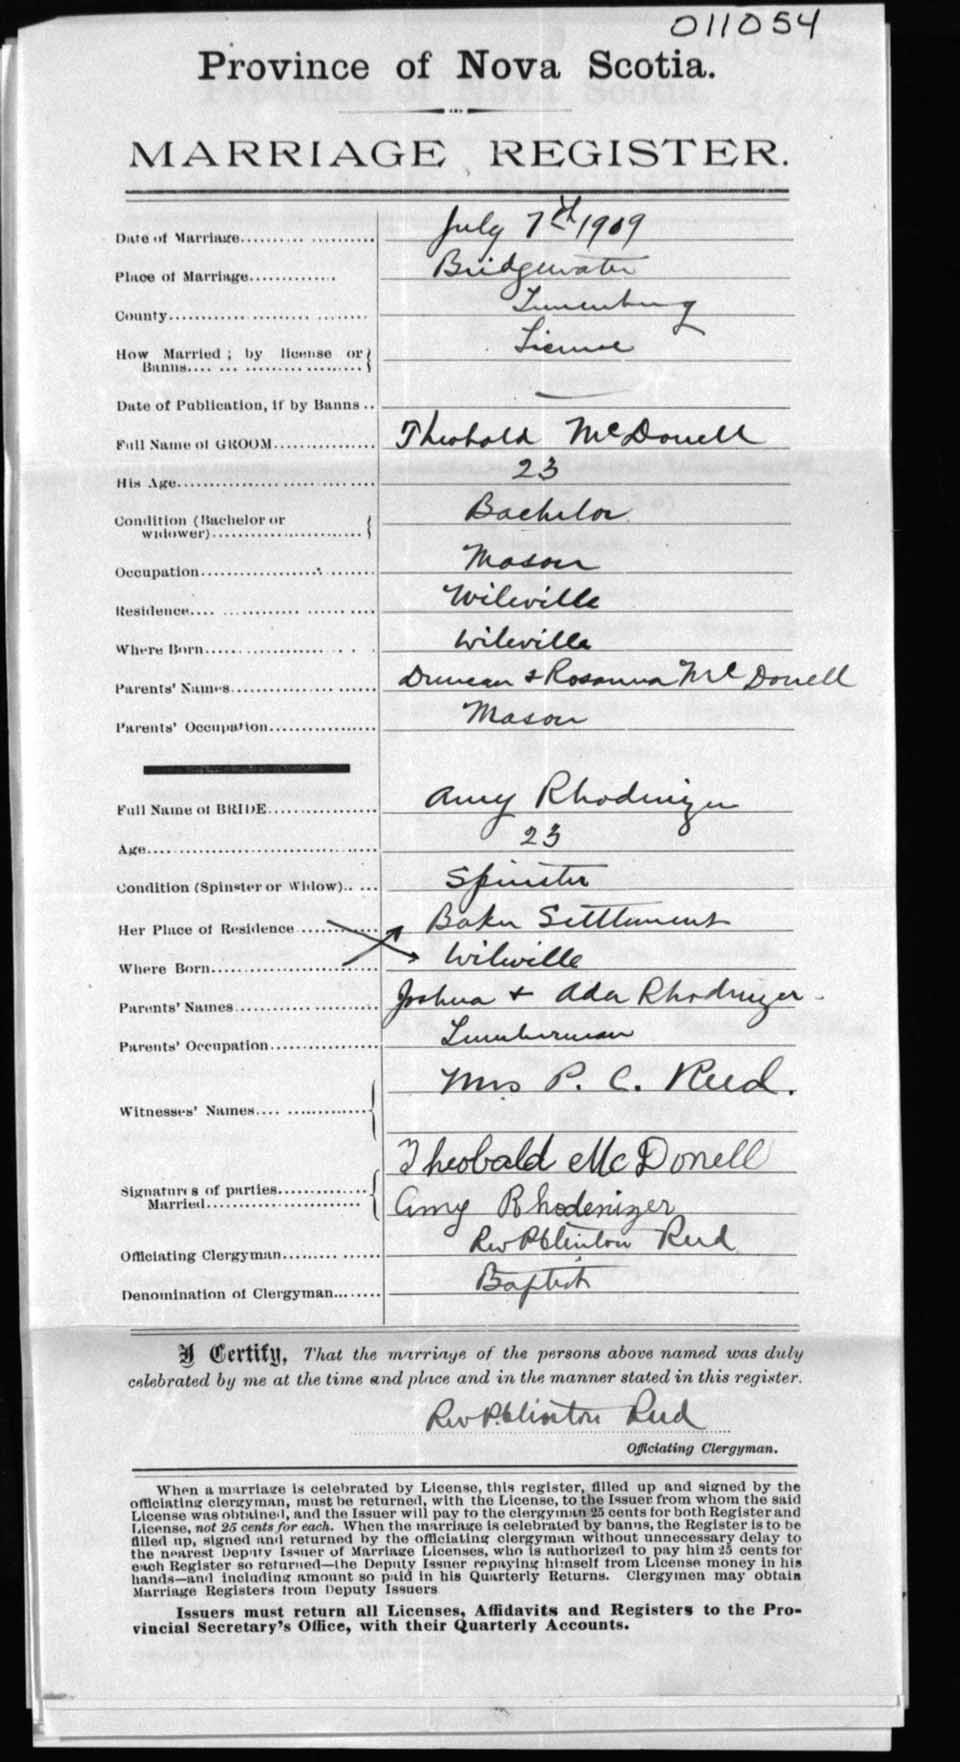 011054
Province of Nova Scotia.
MARRIAGE REGISTER.
Date of Marriage July 7th 1909
Place of Marriage Bridgewater
County Lunenburg
How Married; by license or Banns License
Date of Publication, if by Banns —
Full Name of GROOM Theobald McDonell
His Age 23
Condition (Bachelor or widower) Bachelor
Occupation Mason
Residence Wileville
Where Born Wileville
Parents' Names Duncan & Rosanna McDonell
Parents' Occupation Mason
Full Name of BRIDE Amy Rhodenizer
Age 23
Condition (Spinster or Widow) Spinster
Her Place of Residence Baker Settlement
Where Born Wileville
Parents' Names Joshua + Ada Rhodenizer
Parents' Occupation Lumberman
Witnesses' Names Mrs P. C. Reed.
Signatures of parties Married Theobald McDonell
Amy Rhodenizer
Officiating Clergyman Rev P Clinton Reed
Denomination of Clergyman Baptist
I Certify, That the marriage of the persons above named was duly
celebrated by me at the time and place and in the manner stated in this register.
Rev P. Clinton Reed
Officiating Clergyman.
When a marriage is celebrated by License, this register, filled up and signed by the
officiating clergyman, must be returned, with the License, to the Issuer from whom the said
License was obtained, and the Issuer will pay to the clergyman 25 cents for both Register and
License, not 25 cents for each. When the marriage is celebrated by banns, the Register is to be
filled up, signed and returned by the officiating clergyman without unnecessary delay to
the nearest Deputy Issuer of Marriage Licenses, who is authorized to pay him 25 cents for
each Register so returned—the Deputy Issuer repaying himself from License money in his
hands—and including amount so paid in his Quarterly Returns. Clergymen may obtain
Marriage Registers from Deputy Issuers
Issuers must return all Licenses, Affidavits and Registers to the Pro-
vincial Secretary's Office, with their Quarterly Accounts.